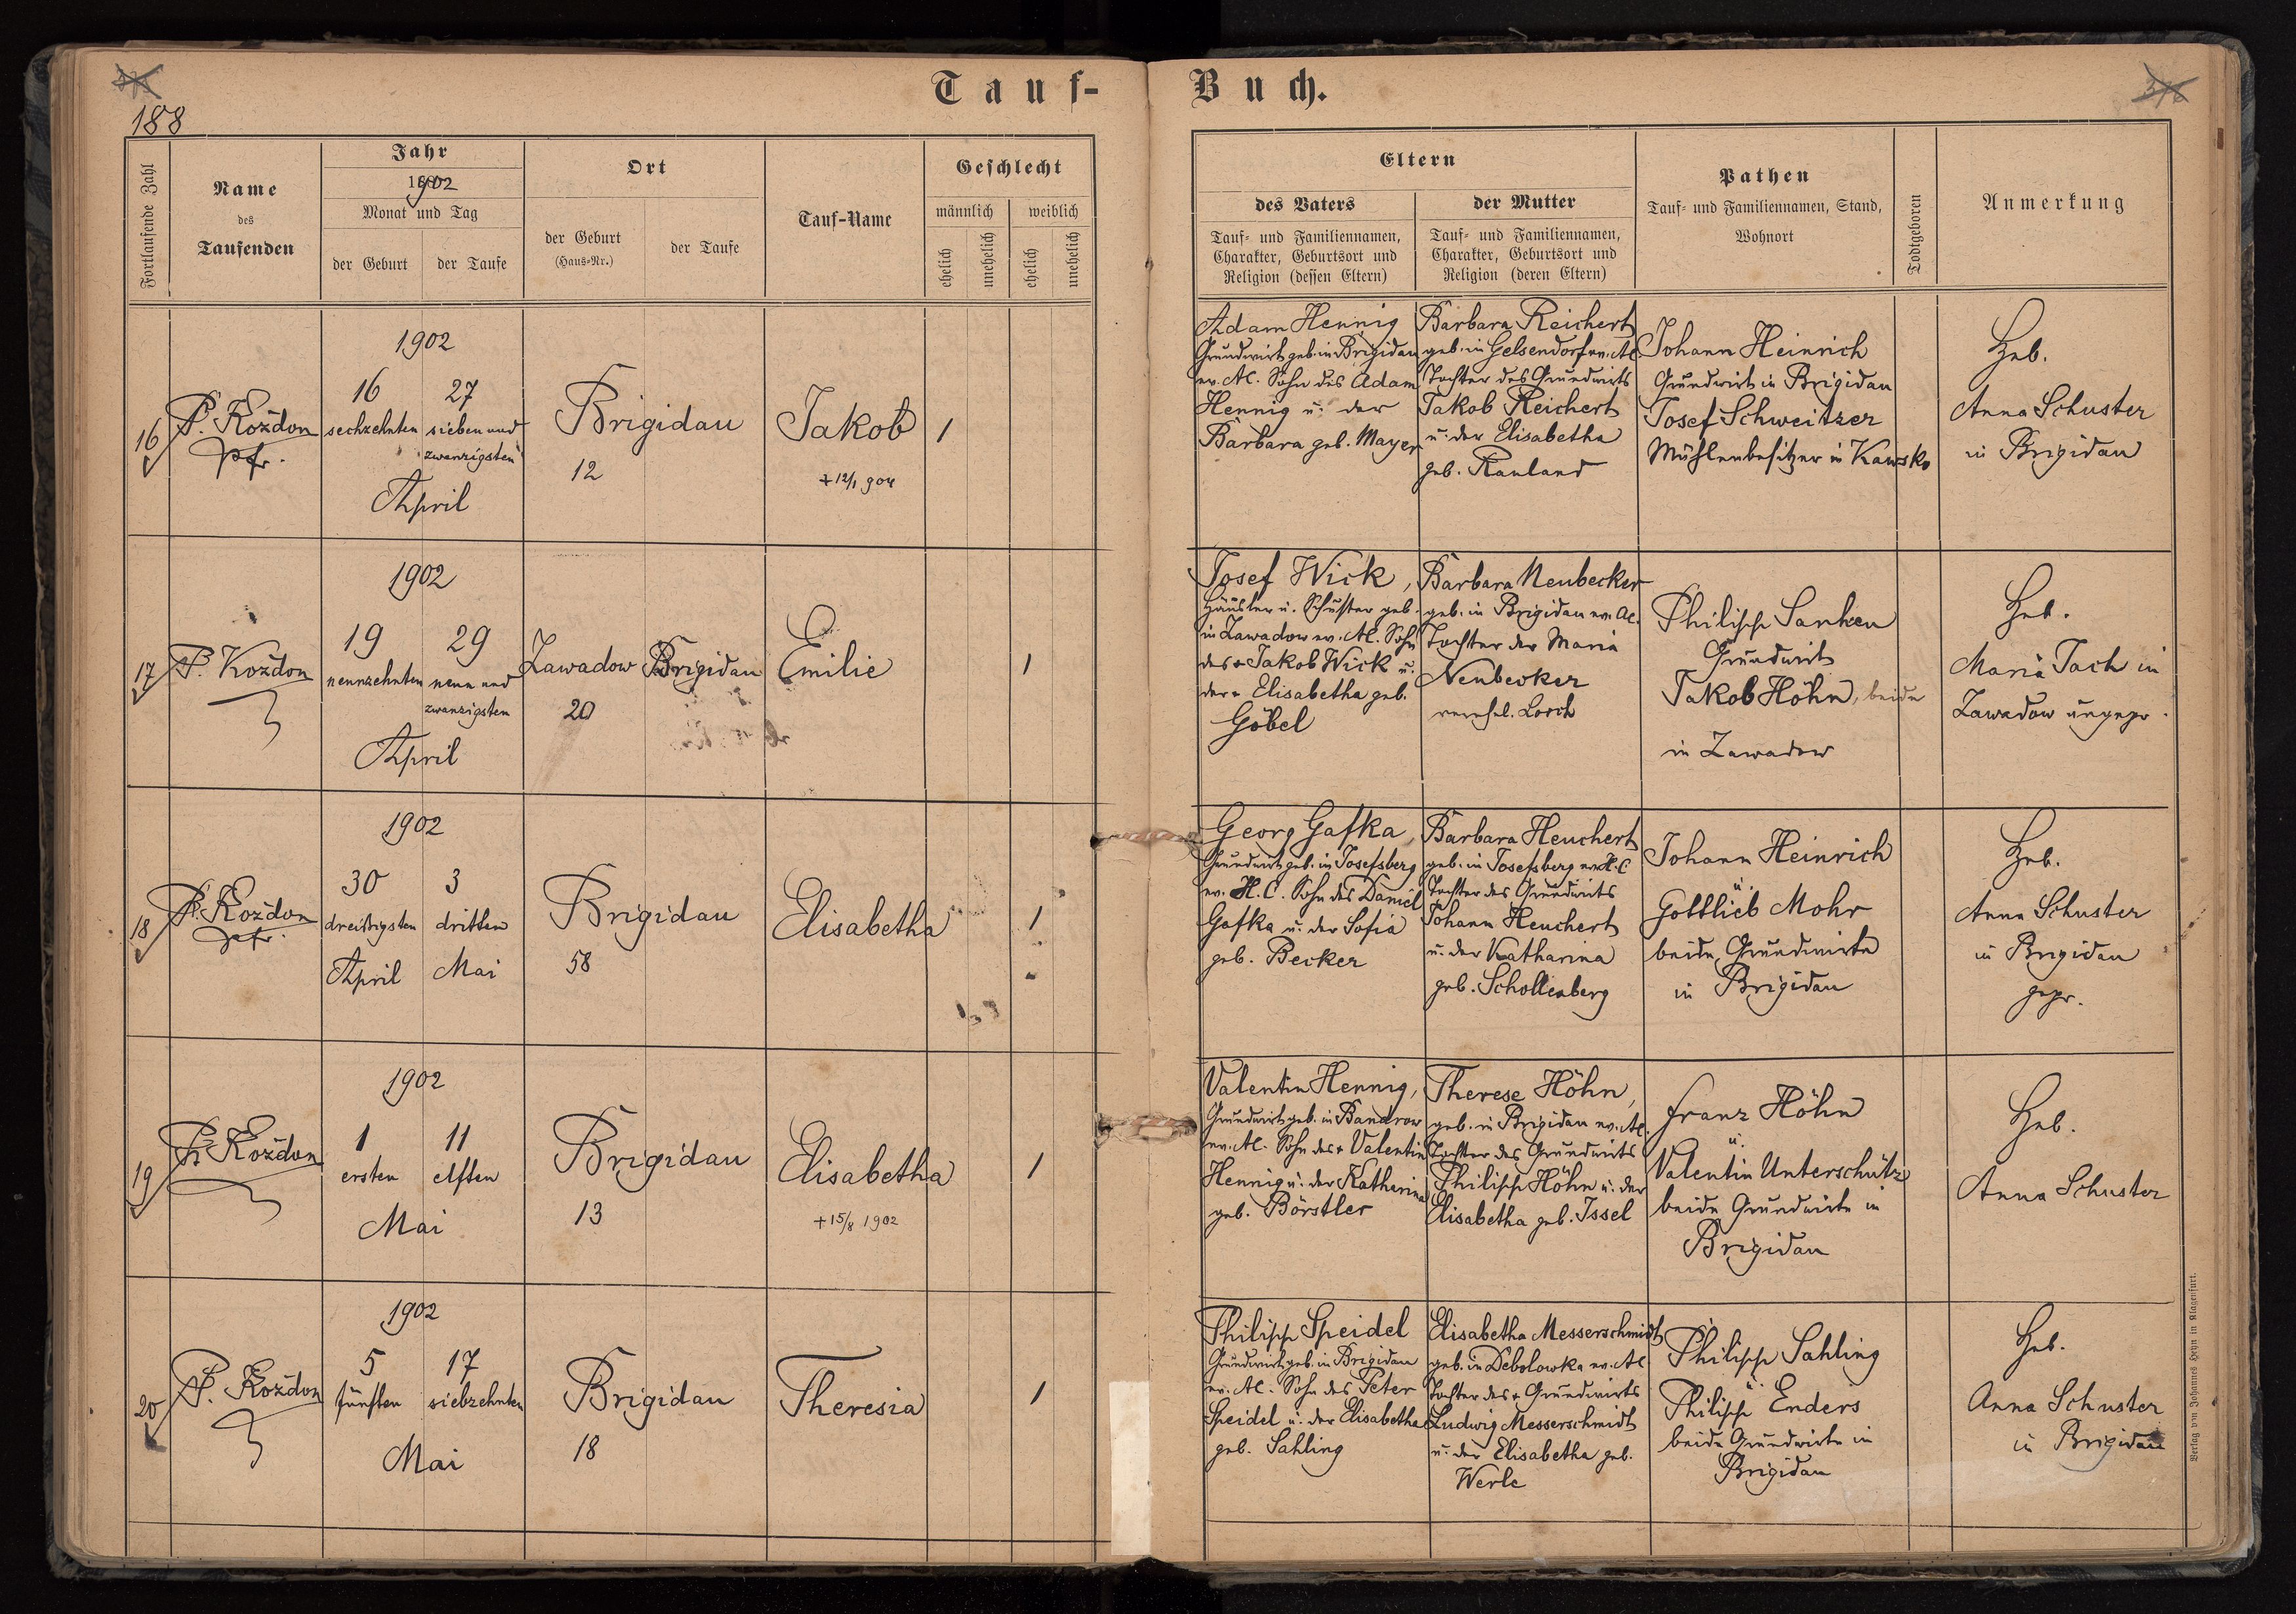 188
Tauf-
Buch.
Fortlaufende Zahl
Name
des
Taufenden
Jahr
1902
Monat und Tag
der Geburt
der Taufe
Ort
der Geburt
(Haus-Nr.)
der Taufe
Tauf-Name
Geschlecht
männlich
weiblich
ehelich
unehelich
ehelich
unehelich
Eltern
des Vaters
Tauf- und Familiennamen,
Charakter, Geburtsort und
Religion (dessen Eltern)
der Mutter
Tauf- und Familiennamen,
Charakter, Geburtsort und
Religion (deren Eltern)
Pathen
Tauf- und Familiennamen, Stand,
Wohnort
Todtgeboren
Anmerkung
16
P. Koždon
Pfr.
1902
16
sechzehnten
27
sieben und
zwanzigsten
April
Brigidau
12
Jakob
+ 12/1 904
1
Adam Hennig
Grundwirt geb. in Brigidau
ev. A.C. Sohn des Adam
Hennig u. der
Barbara geb. Mayer
Barbara Reichert
geb. in Gelsendorf ev. A.C.
Tochter des Grundwirts
Jakob Reichert
u. der Elisabetha
geb. Rauland
Johann Heinrich
Grundwirt in Brigidau
Josef Schweitzer
Mühlenbesitzer in Kawsko
Heb.
Anna Schuster
in Brigidau
17
P. Koždon
1902
19
neunzehnten
29
neun und
zwanzigsten
April
Zawadow
20
Brigidau
Emilie
1
Josef Wick,
Häusler u. Schuster geb.
in Zawadow ev. A.C. Sohn
des + Jakob Wick u.
der + Elisabetha geb.
Göbel
Barbara Neubecker
geb. in Brigidau ev. A.C.
Tochter der Maria
Neubecker
verehel. Lorch
Philipp Sanken
Grundwirt
Jakob Höhn, beide
in Zawadow
Heb.
Maria Tach in
Zawadow ungepr.
18
P. Koždon
Pfr.
1902
30
dreißigsten
April
3
dritten
Mai
Brigidau
58
Elisabetha
1
Georg Gafka,
Grundwirt geb. in Josefsberg
ev. H.C. Sohn des Daniel
Gafka u. der Sofia
geb. Becker
Barbara Heuchert
geb. in Josefsberg ev. H.C.
Tochter des Grundwirts
Johann Heuchert
u. der Katharina
geb. Schollenberg
Johann Heinrich
u.
Gottlieb Mohr
beide Grundwirte
in Brigidau
Heb.
Anna Schuster
in Brigidau
gepr.
19
P. Koždon
1902
1
ersten
11
elften
Mai
Brigidau
13
Elisabetha
+ 15/8 1902
1
Valentin Hennig,
Grundwirt geb. in Bandrow
ev. A.C. Sohn des + Valentin
Hennig u. der Katharina
geb. Börstler
Therese Höhn,
geb. in Brigidau ev. A.C.
Tochter des Grundwirts
Philipp Höhn u. der
Elisabetha geb. Issel
Franz Höhn
u.
Valentin Unterschütz
beide Grundwirte in
Brigidau
Heb.
Anna Schuster
20
P. Koždon
1902
5
fünften
17
siebzehnten
Mai
Brigidau
18
Theresia
1
Philipp Speidel
Grundwirt geb. in Brigidau
ev. A.C. Sohn des Peter
Speidel u. der Elisabetha
geb. Sahling
Elisabetha Messerschmidt
geb. in Debolowka ev. A.C.
Tochter des + Grundwirts
Ludwig Messerschmidt
u. der Elisabetha geb.
Werle
Philipp Sahling
u.
Philipp Enders
beide Grundwirte in
Brigidau
Heb.
Anna Schuster
in Brigidau
Verlag von Johannes Heyn in Klagenfurt.